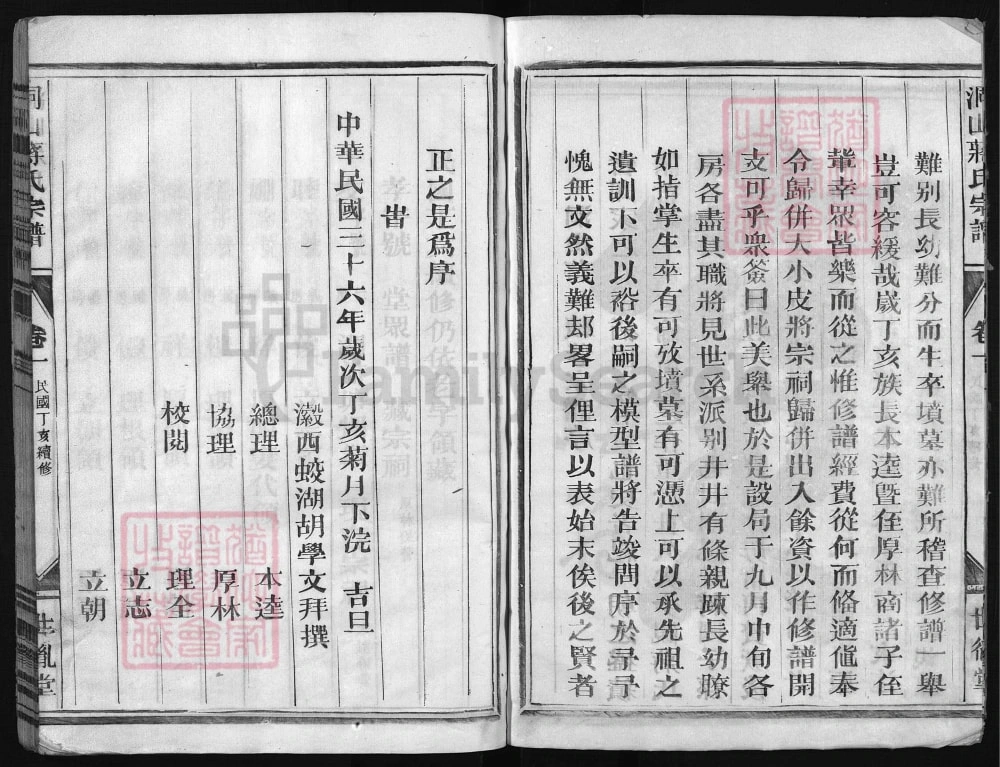 洞山蔣氏宗譜
卷一
難别長幼難分而生卒墳墓亦難所稽查修譜一舉
豈可容緩哉歲丁亥族長本逵暨侄厚林商諸子侄
輩幸眾皆樂而從之惟修譜經費從何而俻適值奉
令歸併大小皮將宗祠歸併出入餘資以作修譜開
支可乎衆簽曰此美舉也於是設局于九月中旬各
房各盡其職將見世系派别井井有條親踈長幼瞭
如指掌生卒有可攷墳墓有可憑上可以承先祖之
遺訓下可以裕後嗣之模型譜將告竣問序於予予
愧無文然義難却畧呈俚言以表始末俟後之賢者
正之是爲序
旹
中華民國三十六年歲次丁亥菊月下浣 吉旦
灊西蛟湖胡學文拜撰
總理 本逵
協理 厚林
校閱 理全
立志
立朝
洞山蔣氏宗譜
卷一
民國丁亥續修
世胤堂
FamilySearch